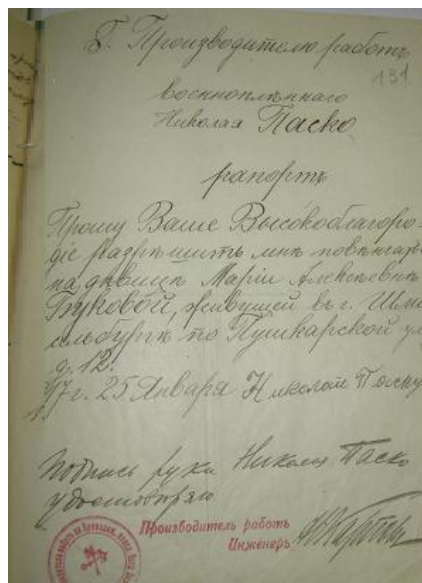 Г. Производителю работъ
131
военноплѣннаго
Николая Паско
рапортъ
Прошу Ваше Высокоблагоро-
діе разрѣшить мнѣ повѣнчать
на дѣвицѣ Маріи Алексѣевнѣ
Буковой, живущей въ г. Шли
сельбургѣ по Пушкарской ул
д. 12.
17 г. 25 Января Николай Паско
Подпись руки Николая Паско
удостовѣряю
Производитель работъ
Инженеръ